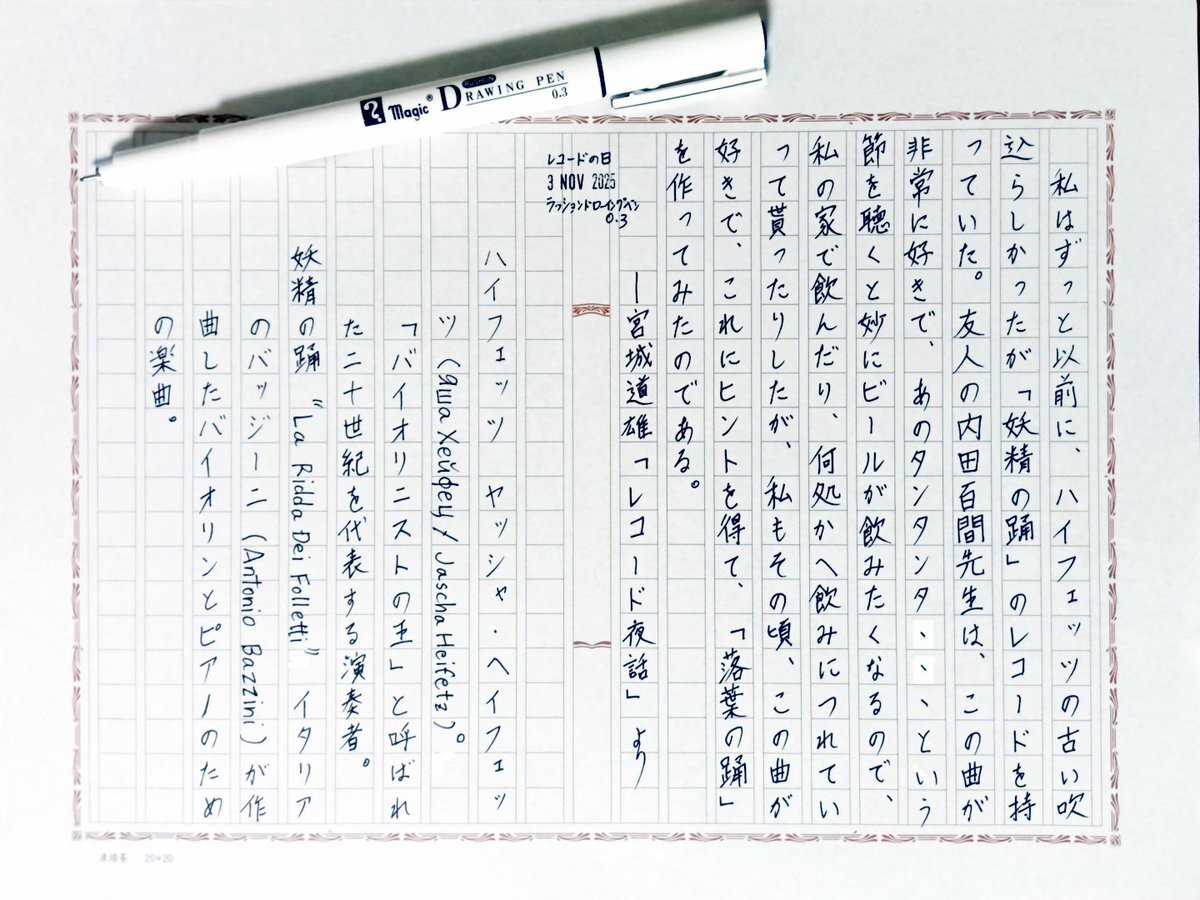 私はずっと以前に、ハイフェッツの古い吹
込らしかったが「妖精の踊」のレコードを持
っていた。友人の内田百間先生は、この曲が
非常に好きで、あのタンタンタ、、、という
節を聴くと妙にビールが飲みたくなるので、
私の家で飲んだり、何処かへ飲みにつれてい
って貰ったりしたが、私もその頃、この曲が
好きで、これにヒントを得て、「落葉の踊」
を作ってみたのである。
―宮城道雄「レコード夜話」より
レコードの日
3 NOV 2025
ラッションドローイングペン
0.3
ハイフェッツ ヤッシャ・ヘイフェッ
ツ（Яша Хейфец / Jascha Heifetz）。
「バイオリニストの王」と呼ばれ
た二十世紀を代表する演奏者。
妖精の踊 “La Ridda Dei Folletti” イタリア
のバッジーニ（Antonio Bazzini）が作
曲したバイオリンとピアノのため
の楽曲。
Magic® RUSHON DRAWING PEN
0.3
20×20